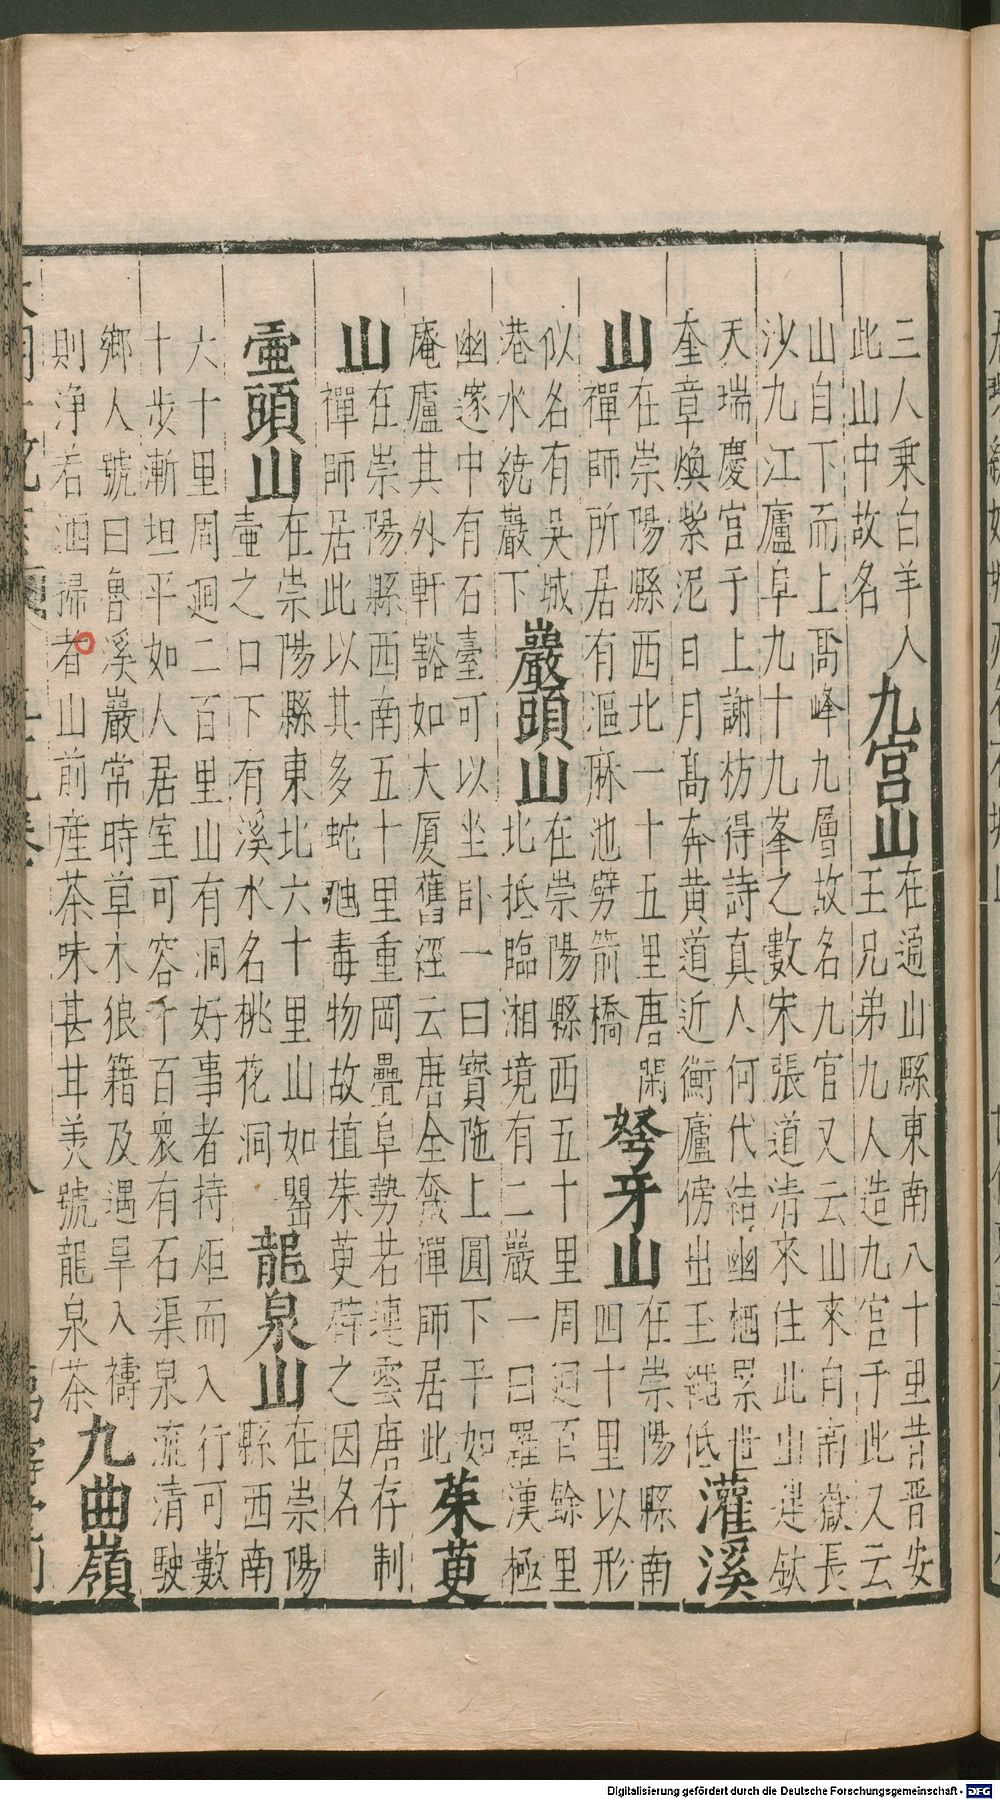 三人乗白羊入
此山中故名
九宫山
在通山縣東南八十里昔晋安
王兄弟九人造九宫于此又云
山自下而上髙峰九層故名九宫又云山來自南嶽長
沙九江廬阜九十九峯之數宋張道清來住此山建欽
天瑞慶宫于上謝枋得詩真人何代結幽栖累世
奎章煥紫泥日月髙奔黄道近衡廬傍出玉繩低
灌溪
山
在崇陽縣西北一十五里唐閑
禪師所居有漚麻池劈箭橋
弩牙山
在崇陽縣南
四十里以形
似名有吴城
港水繞巖下
巖頭山
在崇陽縣西五十里周迴百餘里
北抵臨湘境有二巖一曰羅漢極
幽邃中有石臺可以坐卧一曰寳陁上圓下平如
庵廬其外軒豁如大厦舊經云唐全奯禪師居此
茱萸
山
在崇陽縣西南五十里重岡疊阜勢若連雲唐存制
禪師居此以其多蛇虺毒物故植茱萸辟之因名
壷頭山
在崇陽縣東北六十里山如罌
壷之口下有溪水名桃花洞
龍泉山
在崇陽
縣西南
六十里周迴二百里山有洞好事者持炬而入行可數
十步漸坦平如人居室可容千百衆有石渠泉流清駛
鄉人號曰魯溪巖常時草木狼籍及遇旱入禱
則浄若洒掃者山前産茶味甚甘美號龍泉茶
九曲嶺
Digitalisierung gefördert durch die Deutsche Forschungsgemeinschaft - DFG